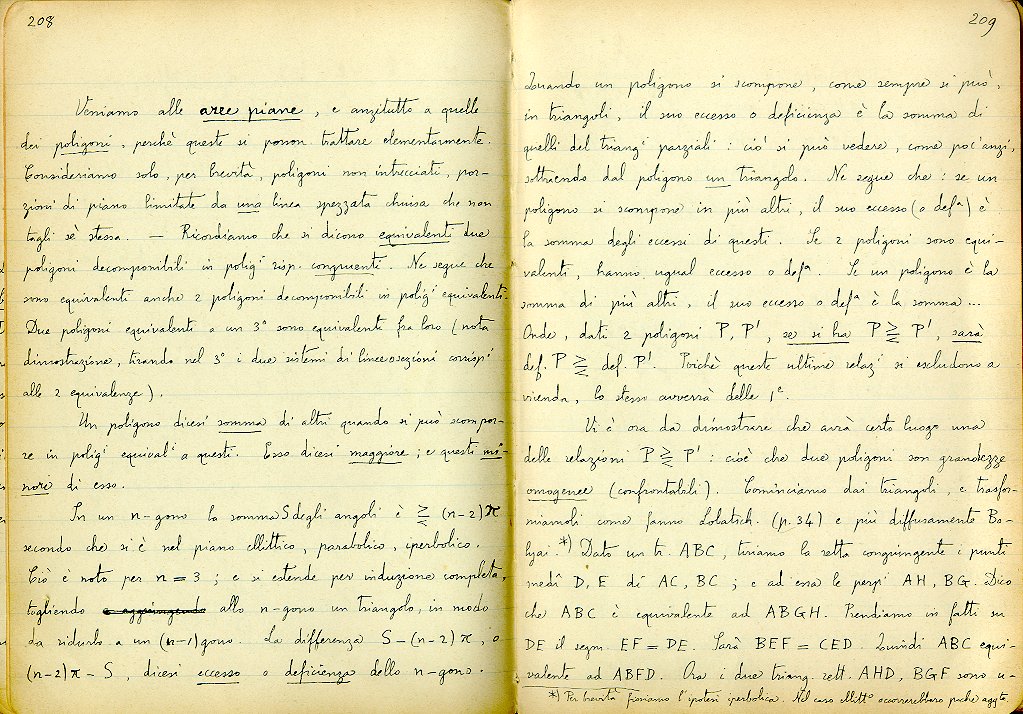 208
Veniamo alle aree piane, e anzitutto a quelle
dei poligoni, perchè queste si posson trattare elementarmente.
Consideriamo solo, per brevità, poligoni non intrecciati, por-
zioni di piano limitate da una linea spezzata chiusa che non
tagli sè stessa. — Ricordiamo che si dicono equivalenti due
poligoni decomponibili in polig^i risp. congruenti. Ne segue che
sono equivalenti anche 2 poligoni decomponibili in polig^i equivalenti.
Due poligoni equivalenti a un 3° sono equivalenti fra loro (nota
dimostrazione, tirando nel 3° i due sistemi di linee sezioni corrisp^i
alle 2 equivalenze).
Un poligono dicesi somma di altri quando si può scompor-
re in polig^i equival^i a questi. Esso dicesi maggiore; e questi mi-
nore di esso.
In un n-gono la somma S degli angoli è ⋛ (n-2)π
secondo che si è nel piano ellittico, parabolico, iperbolico.
Ciò è noto per n = 3; e si estende per induzione completa,
togliendo allo n-gono un triangolo, in modo
da ridurlo a un (n-1)gono. La differenza S-(n-2)π, o
(n-2)π-S, dicesi eccesso o deficienza dello n-gono.
209
Quando un poligono si scompone, come sempre si può,
in triangoli, il suo eccesso o deficienza è la somma di
quelli dei triang^i parziali: ciò si può vedere, come poc'anzi,
sottraendo dal poligono un triangolo. Ne segue che: se un
poligono si scompone in più altri, il suo eccesso (o def^a) è
la somma degli eccessi di questi. Se 2 poligoni sono equi-
valenti, hanno ugual eccesso o def^a. Se un poligono è la
somma di più altri, il suo eccesso o def^a è la somma ...
Onde, dati 2 poligoni P, P', se si ha P ⋛ P', sarà
def. P ⋛ def. P'. Poichè queste ultime relaz^i si escludono a
vicenda, lo stesso avverrà delle 1^e.
Vi è ora da dimostrare che avrà certo luogo una
delle relazioni P ⋛ P': cioè che due poligoni son grandezze
omogenee (confrontabili). Cominciamo dai triangoli, e trasfor-
miamoli come fanno Lobatsch. (p. 34) e più diffusamente Bo-
lyai.*) Dato un tr. ABC, tiriamo la retta congiungente i punti
medî D, E di AC, BC; e ad essa le perp^i AH, BG. Dico
che ABC è equivalente ad ABGH. Prendiamo in fatti su
DE il segm. EF = DE. Sarà BEF = CED. Quindi ABC equi-
valente ad ABFD. Ora i due triang. rett. AHD, BGF sono u-
*) Per brevità fissiamo l'ipotesi iperbolica. Nel caso ellitt^o occorrerebbero poche aggte.